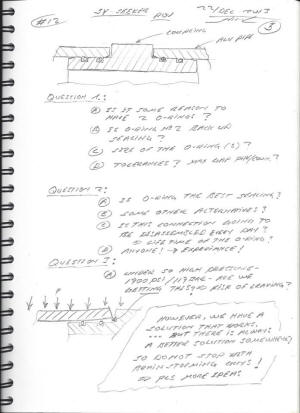 #12 SV-SEEKER ROV 22/DEC
3
COUPLING
ROV PIPE
QUESTION 1:
A IS IT SOME REASON TO
MAKE 2 O-RINGS?
B IS O-RING No 2 BACK UP
SEALING?
C SIZE OF THE O-RING(S)?
D TOLERANCES? MAX GAP
QUESTION 2:
A IS O-RING THE BEST SEALING?
B SOME OTHER ALTERNATIVES?
C IS THIS CONNECTION GOING TO
BE DISASSEMBLED EVERY DAY?
LIFE TIME OF THE O-RING?
D ANYONE! → EXPERIENCE!
QUESTION 3:
A UNDER SO HIGH PRESSURE-
ARE WE
GETTING RISK OF LEAKING?
HOWEVER, WE HAVE A
SOLUTION THAT WORKS,
... BUT THERE IS ALWAYS
A BETTER SOLUTION SOMEWHERE)
SO DO NOT STOP WITH
BRAINSTORMING GUYS!
PLS MORE IDEAS